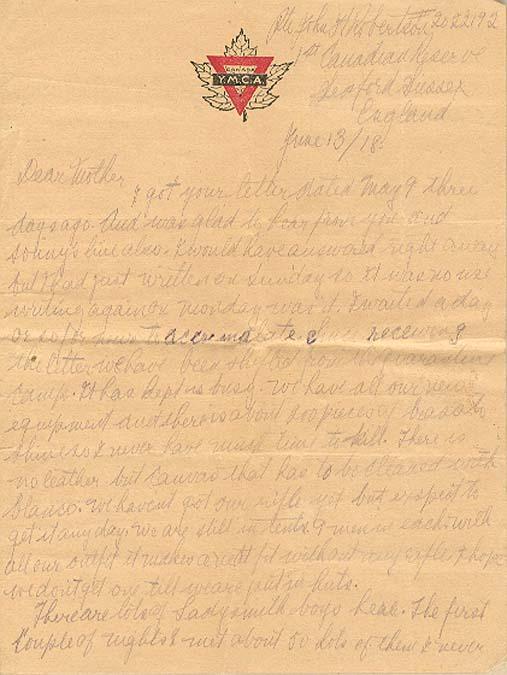 Pte John H Robertson # 2022192
1st Canadian Reserve
Sussex
England
CANADA
Y.M.C.A.
June 13/18.
Dear Mother
I got your letter dated May 9 three
days ago. And was glad to hear from you and
sonny's line also. I would have answered right away
but I had just written on Sunday so it was no use
writing again on monday was it. I waited a day
or so for news to accumulate. Since receiving
the letter we have been shifted from the quarantine
camp. It has kept us busy. We have all our new
equipment and there is about 200 pieces of brass to
shine so I never have much time to kill. There is
no leather but canvas that has to be cleaned with
blanco. We havent got our rifle yet but expect to
get it any day. We are still in tents. 9 men in each with
all our outfit it makes a nett fit without any rifle I hope
we dont get one till we are put in huts.
There are lots of Ladysmith boys hear. The first
couple of nights I met about 50 lots of them I never